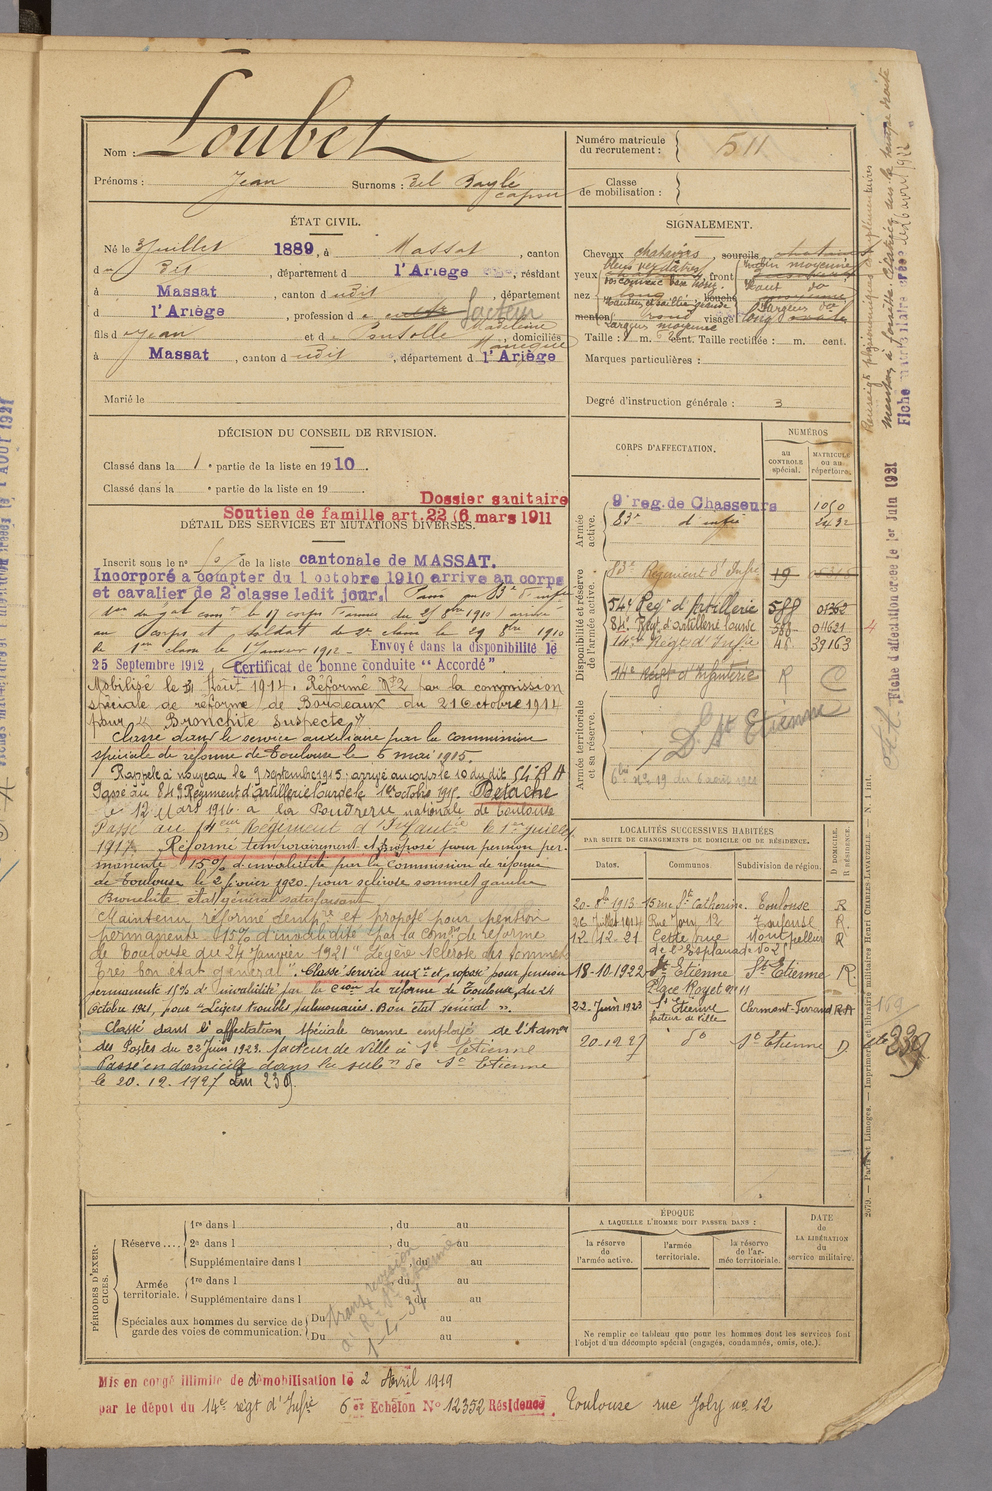 Nom : Loubet
Prénoms : Jean Surnoms : Del Baylé
capou
ÉTAT CIVIL.
Né le 3 Juillet 1889, à Massat, canton
d dit, département d l'Ariège, résidant
à Massat, canton d udit, département
d l'Ariège, profession d e facteur
fils d e Jean et d e Pontolle Madeleine
Monique, domiciliés
à Massat, canton d udit, département d l'Ariège
Marié le
DÉCISION DU CONSEIL DE REVISION.
Classé dans la 1e partie de la liste en 1910.
Classé dans la e partie de la liste en 19
Dossier sanitaire
Soutien de famille art. 22 (6 mars 1911
DÉTAIL DES SERVICES ET MUTATIONS DIVERSES.
Inscrit sous le n° de la liste cantonale de MASSAT.
Incorporé a compter du 1 octobre 1910 arrive au corps
et cavalier de 2e classe ledit jour. Passé au 83e d'infie
du 17 corps d'armée du 25 8bre 1910 arrivé
au corps et soldat de 2e classe le 29 8bre 1910
de 1ere classe le 1 Janvier 1912 - Envoyé dans la disponibilité le
25 Septembre 1912, Certificat de bonne conduite "Accordé".
Mobilisé le 31 Août 1914. Réformé N°2 par la commission
spéciale de réforme de Bordeaux du 21 Octobre 1914
pour " Bronchite suspecte "
Classé dans le service auxiliaire par la commission
spéciale de réforme de Toulouse le 5 mai 1915.
Rappelé à nouveau le 9 septembre 1915. arrivé au corps le 10 du dit 54e R A
Passé au 84e Régiment d'artillerie lourde le 1er octobre 1915. Détaché
le 12 Mars 1916 à la Poudrerie nationale de Toulouse
Passé au 14eme Régiment d'Infantie le 1er juillet
1917. Réformé temporairement et Proposé pour pension per-
manente 15% d'invalidité par la Commission de réforme
de Toulouse le 2 février 1920. pour sclérose sommet gauche
Bronchite état général satisfaisant
Maintenu réformé tempre et proposé pour pension
permanente 15% d'invalidité par la Comon de réforme
de Toulouse du 24 Janvier 1921 "Légère sclérose des sommets
très bon état général". Classé service auxre et proposé pour pension
permanente 15% d'invalidité par la Cion de réforme de Toulouse du 24
Octobre 1921, pour "Légers troubles pulmonaires. Bon état général".
Classé dans l'affectation spéciale comme employé de l'Admon
des Postes du 22 Juin 1923. facteur de ville à St Etienne
Passé en domicile dans la subon de St Etienne
le 20.12.1927 Lm 239
Numéro matricule
du recrutement : 511
Classe
de mobilisation :
SIGNALEMENT.
Cheveux chatains, sourcils chatains
yeux bleus verdâtres, front
nez, bouche
menton rond visage long ovale
Taille : 1 m. cent. Taille rectifiée : m. cent.
Marques particulières :
Degré d'instruction générale : 3
CORPS D'AFFECTATION.
NUMÉROS
au
CONTROLE
spécial.
MATRICULE
ou au
répertoire.
Armée
active.
9e reg. de Chasseurs 1050
83e d'infie 2432
Disponibilité et réserve
de l'armée active.
83e Régiment d'Infie 19
54e Regt d'Artillerie 588 01362
84e Regt d'artillerie lourde 588 01621
14e Régt d'Infie 48 39163
14e Régt d'Infanterie R C
Armée territoriale
et sa réserve.
D. St Etienne
LOCALITÉS SUCCESSIVES HABITÉES
PAR SUITE DE CHANGEMENTS DE DOMICILE OU DE RÉSIDENCE.
D. DOMICILE.
R. RÉSIDENCE.
Dates. Communes. Subdivision de région.
20.8bre 1913 15 rue Ste Catherine. Toulouse R
26 Juillet 1914 Rue Joly 12 Toulouse R.
12/12.21 Cette rue Montpellier R
de l'Esplanade N°21
18-10.1922 St Etienne St Etienne R
Place Royet n° 11
22 Juin 1923 St Etienne Clermont-Ferrand RA
facteur de ville
20.12.27 do St Etienne D
PÉRIODES D'EXER-
CICES.
Réserve....
1re dans l , du au
2e dans l , du au
Supplémentaire dans l , du au
Armée
territoriale.
1re dans l , du au
Supplémentaire dans l du au
Spéciales aux hommes du service de
garde des voies de communication.
Du au
Du au
ÉPOQUE
A LAQUELLE L'HOMME DOIT PASSER DANS :
la réserve
de l'armée active.
l'armée
territoriale.
la réserve
de l'ar-
mée territoriale.
DATE
de
LA LIBÉRATION
du
service militaire.
Ne remplir ce tableau que pour les hommes dont les services font
l'objet d'un décompte spécial (engagés, condamnés, omis, etc.).
Mis en congé illimité de démobilisation le 2 Avril 1919
par le dépot du 14e régt d'Infie 6e Echelon N° 12352 Résidence Toulouse rue Joly n° 12
Renseigts physionomiques complémentaires
menton à fossette. Cicatrice sur la tempe droite
Fiche matriculaire créée le 26 avril 1922
Fiche d'affectation créée le 1er Juin 1921
2679. — Paris et Limoges. — Imprimerie et librairie militaires Henri CHARLES-LAVAUZELLE. — N. 1 int.
169
239